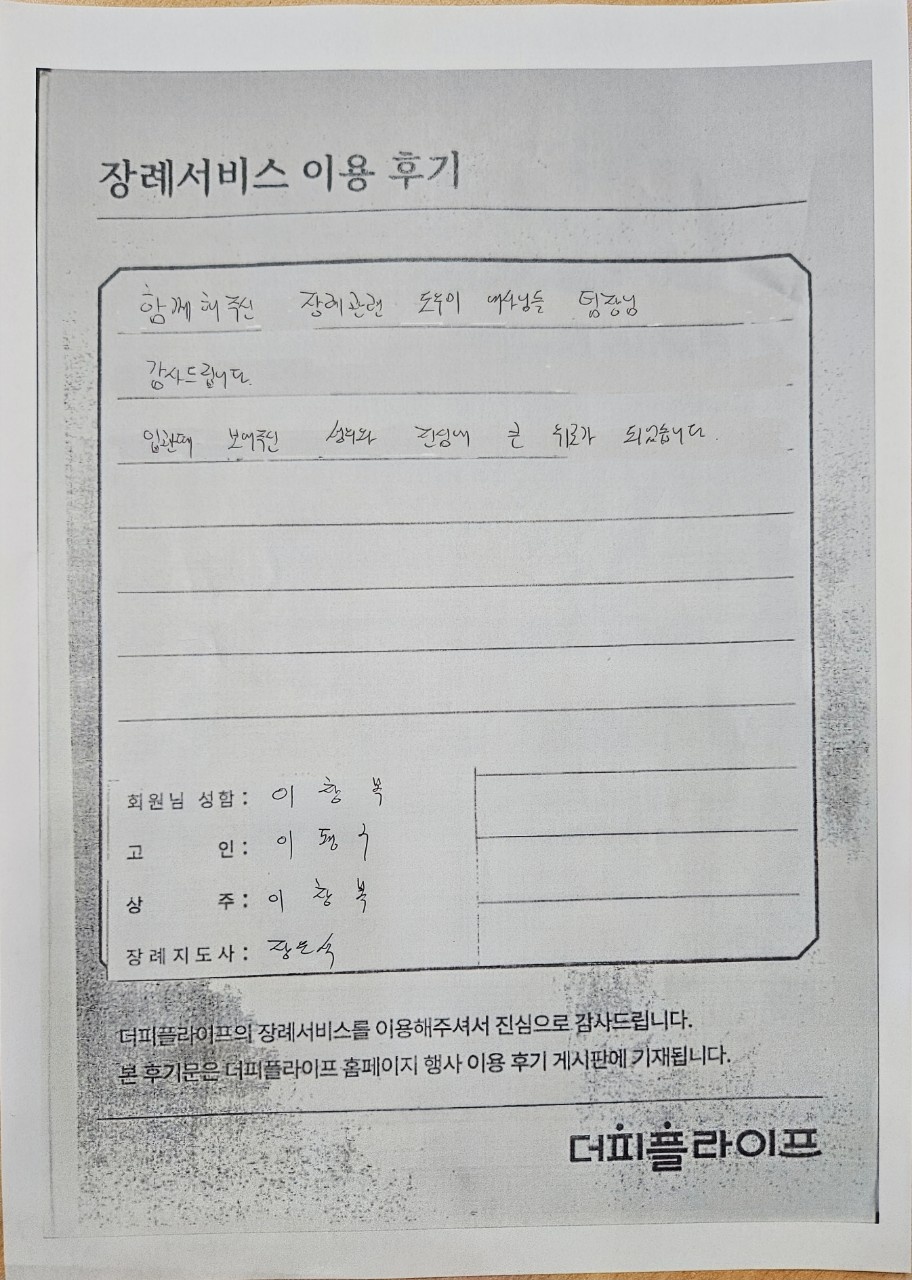 장례서비스 이용 후기
함께해주신 장례관련 도우미 여사님들 팀장님
감사드립니다.
입관때 보여주신 성의와 진성에 큰 위로가 되었습니다.
회원님 성함: 이창복
고 인: 이
상 주: 이창복
장례지도사: 장
더피플라이프의 장례서비스를 이용해주셔서 진심으로 감사드립니다.
본 후기문은 더피플라이프 홈페이지 행사 이용 후기 게시판에 기재됩니다.
더피플라이프